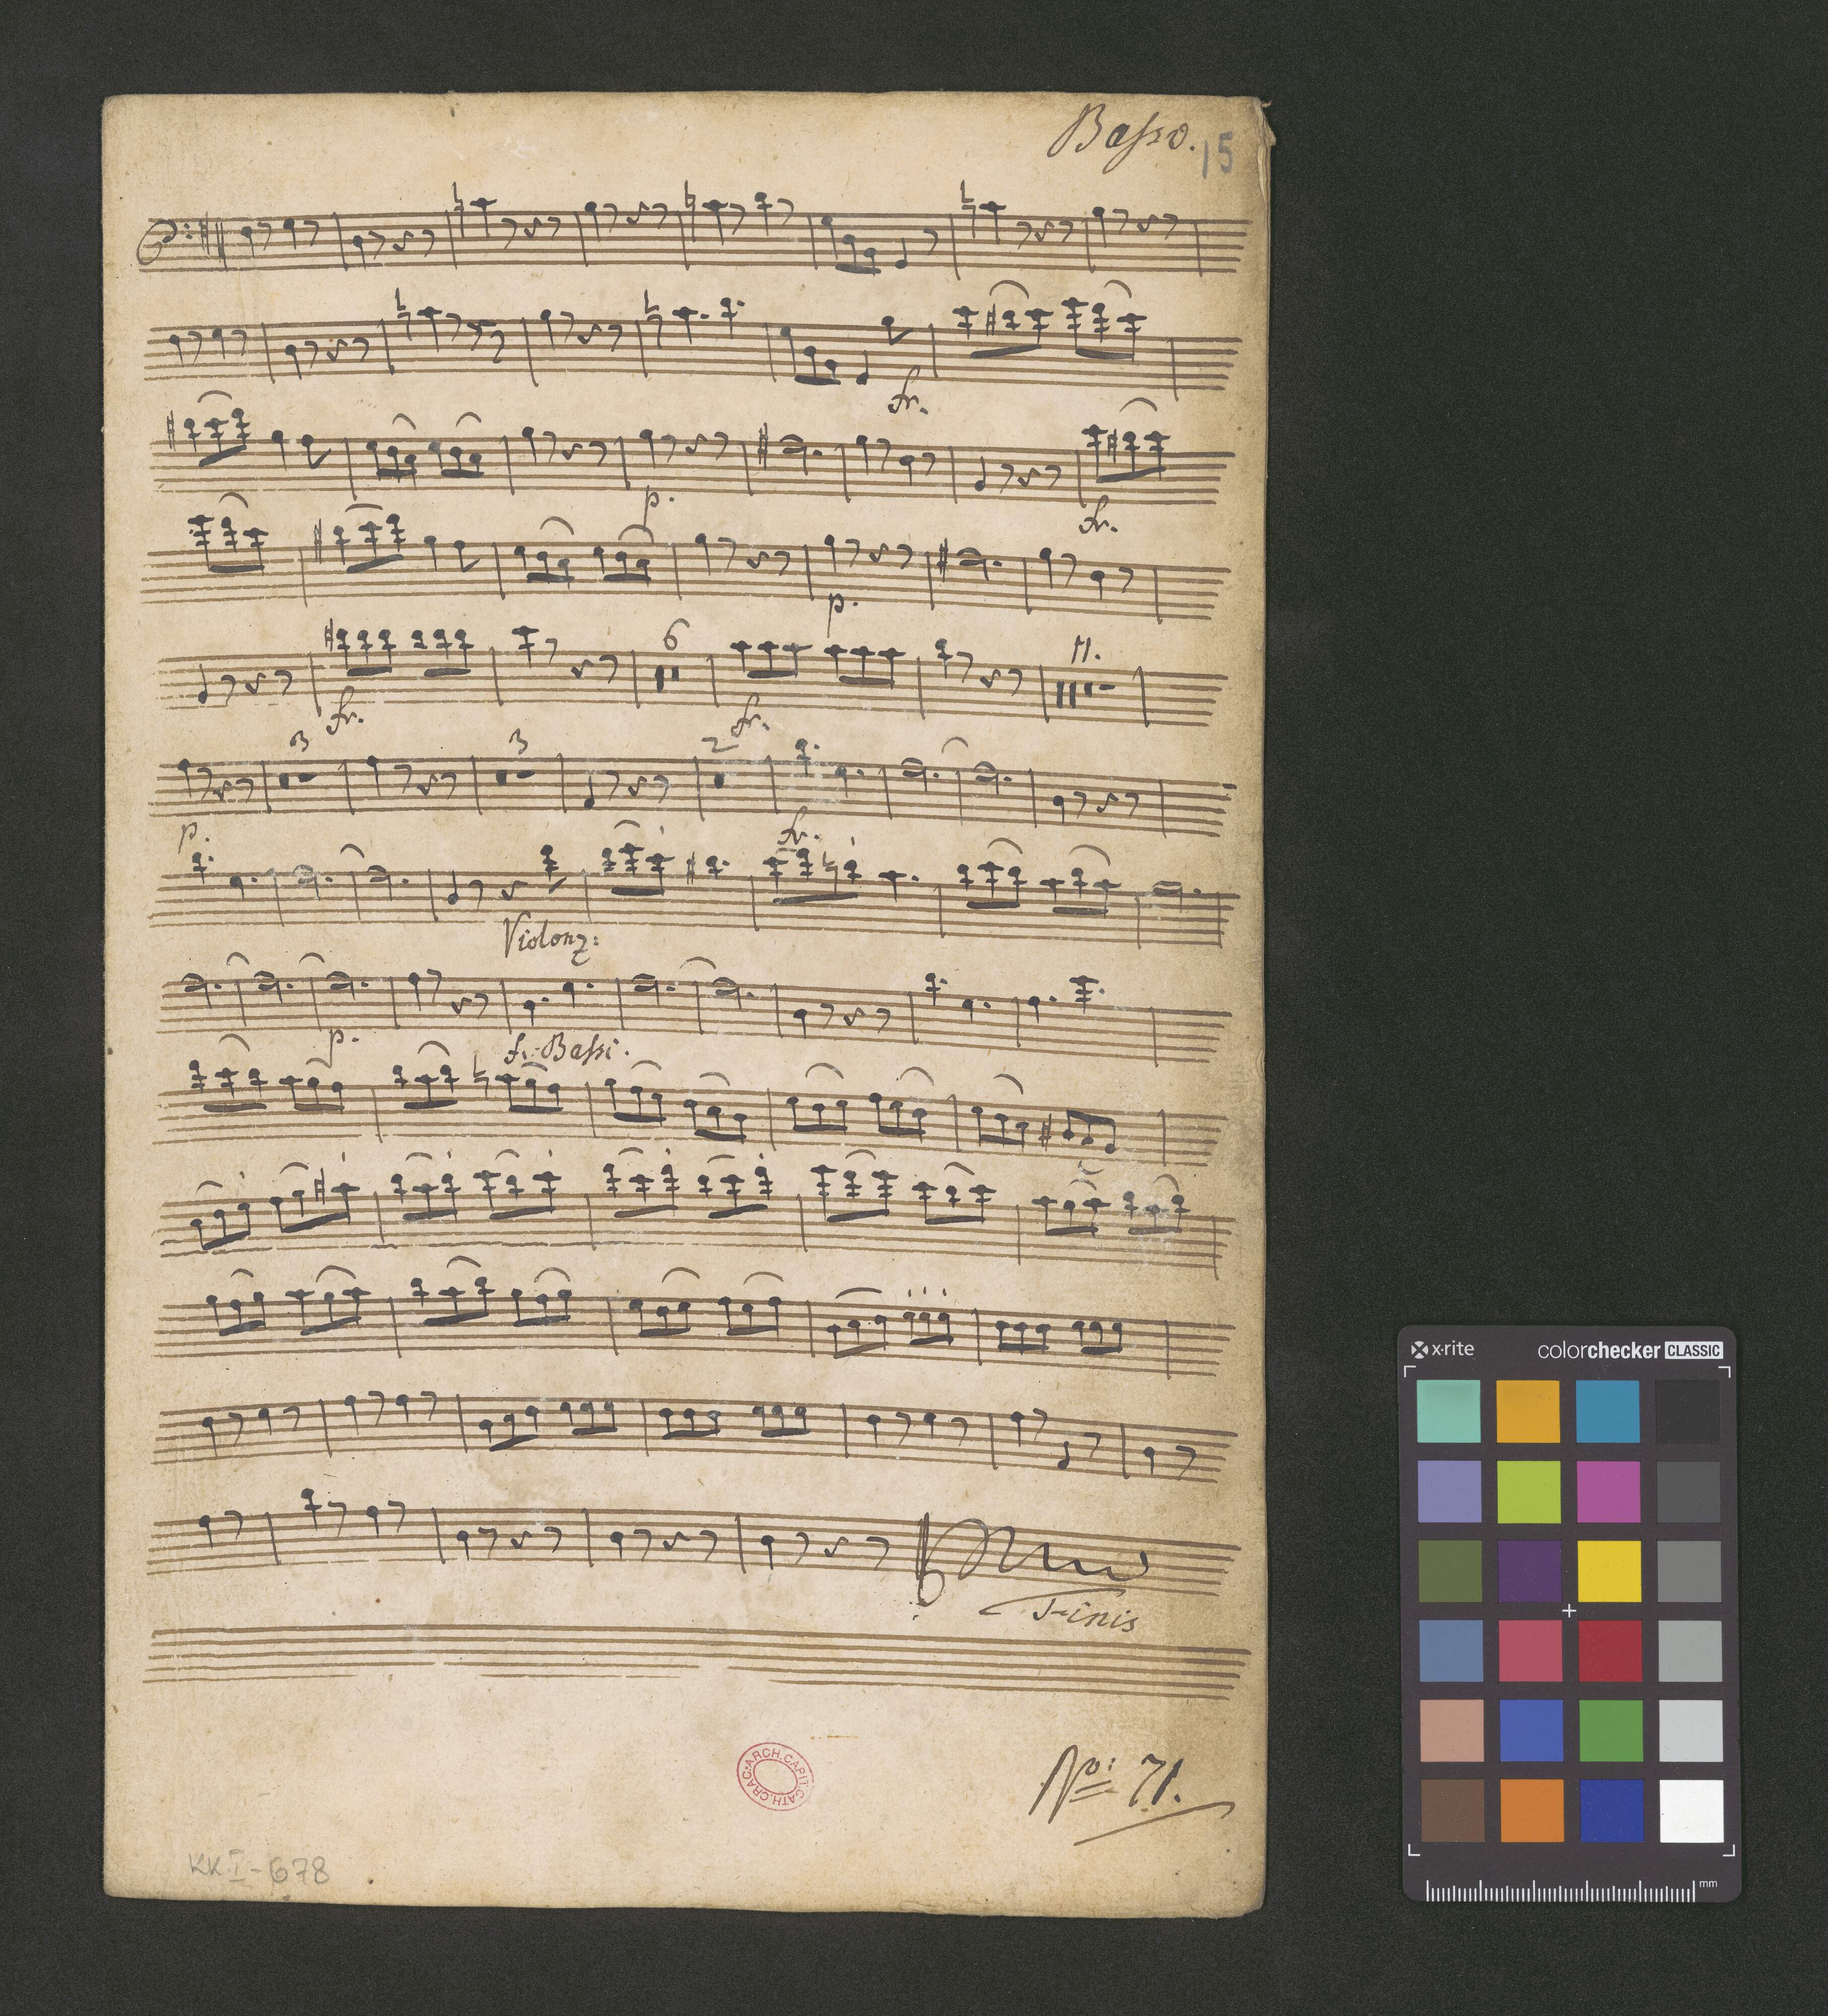 Basso.
15
fr.
p.
fr.
p.
6
11.
fr.
fr.
3
3
2
p.
fr.
Violonz:
p.
f. Bassi.
Finis
No: 71.
ARCH.CAPIT.CATH.CRAC.
KK I-678
x-rite
colorchecker CLASSIC
mm